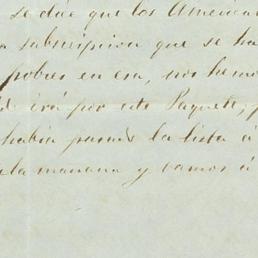 se dice que los America
a subscripcion que se ha
pobres en esa, nos hemo
irá por este Paquete,
habia pasado la lista á
la mañana y vamos á